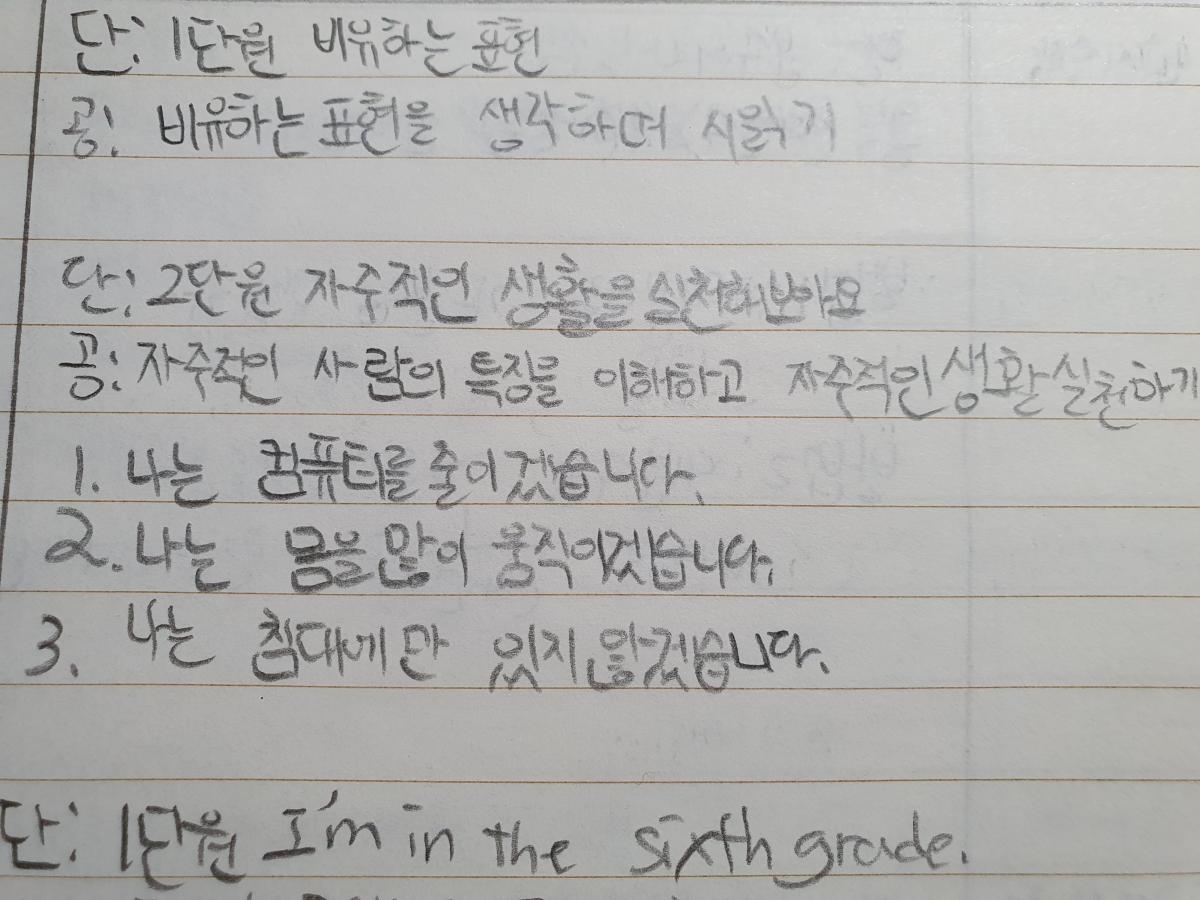 단: 1단원 비유하는 표현
공: 비유하는 표현을 생각하며 시 읽기
단: 2단원 자주적인 생활을 실천해보아요
공: 자주적인 사람의 특징을 이해하고 자주적인 생활 실천하기
1. 나는 컴퓨터를 줄이겠습니다.
2. 나는 몸을 많이 움직이겠습니다.
3. 나는 침대에만 있지 않겠습니다.
단: 1단원 I'm in the sixth grade.